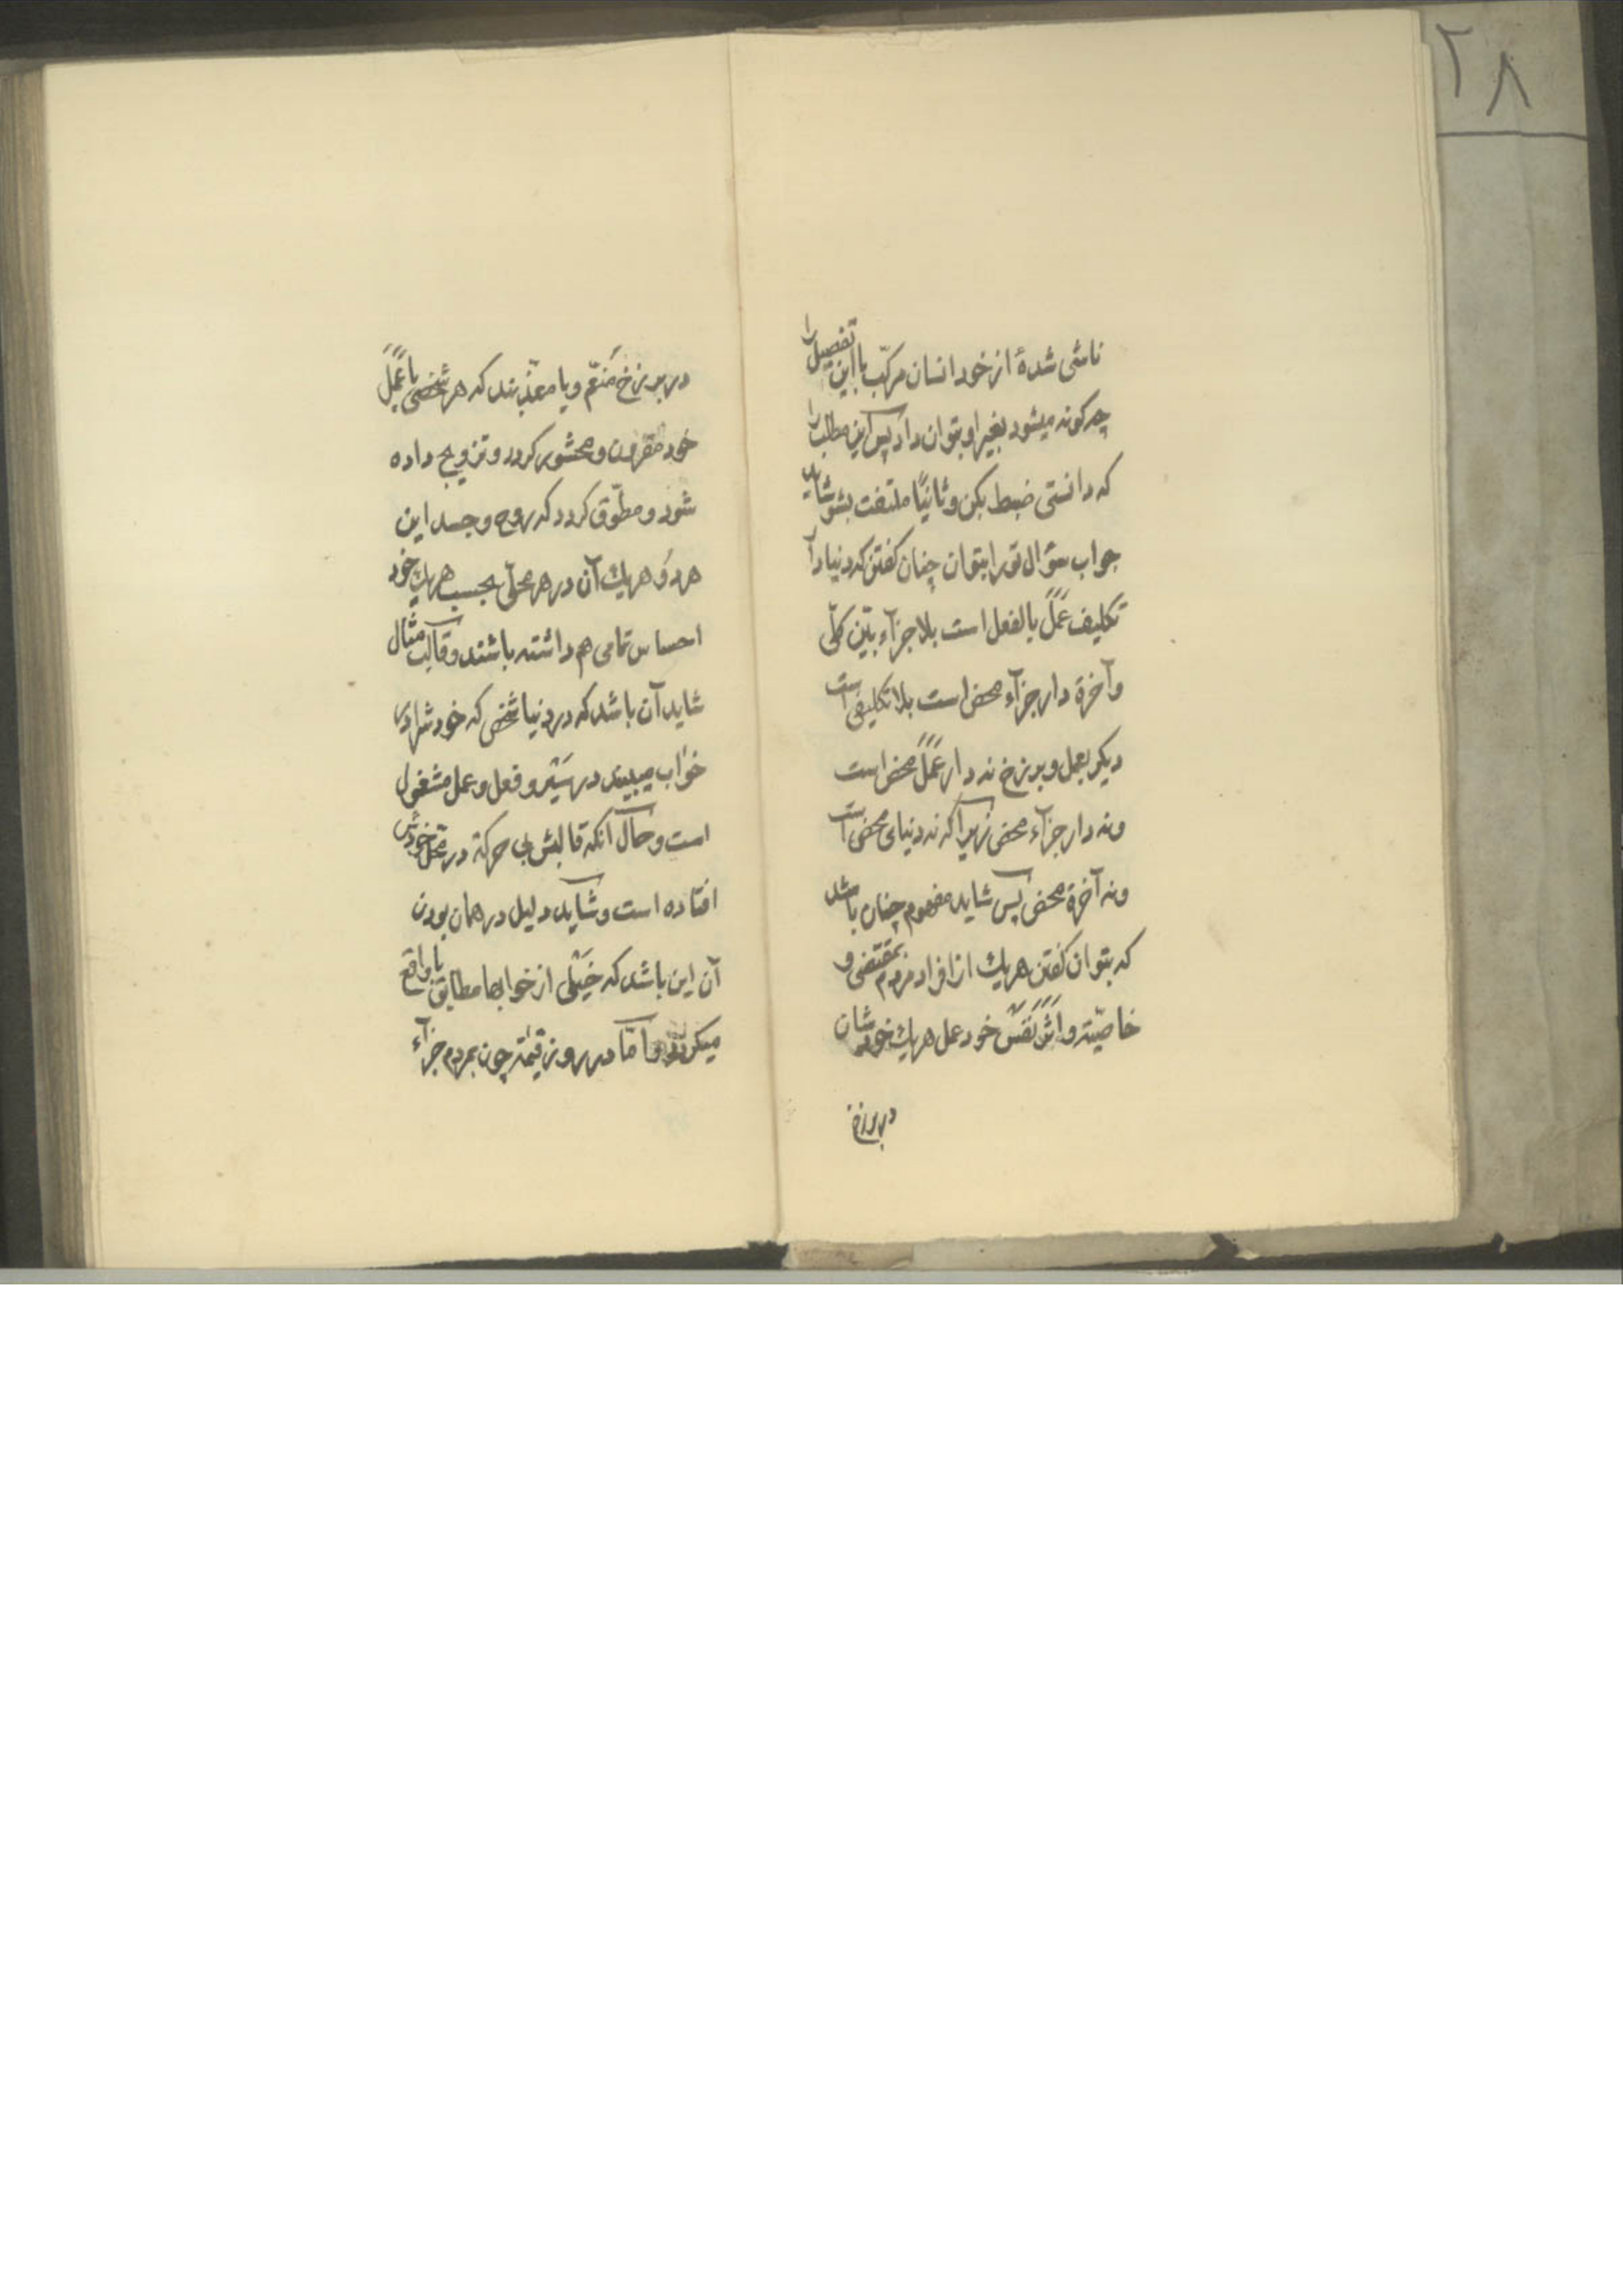 ۲۸
ناشی شدهٔ از خود انسان مرکّب با این تفصیل را
چه کونه میشود بغیر او بتوان داد پس این مطلب را
که دانستی ضبط بکن و ثانیًا ملتفت بشو شاید
جواب سؤال تو را بتوان چنان کفتن که دنیا دار
تکلیف عَمَلً بالفعل است بلا جزآء بیّن کلّی
وآخرة دار جزآء محض است بلا تکلیفی است
دیکر بعمل و برزخ نه دار عَمَلً محض است
ونه دار جزآء محض زیرا که نه دنیای محض است
ونه آخرة محض پس شاید مفهوم چنان باشد
که بتوان کفتن هریك از افراد مردم بمقتضی و
خاصیّته و اثر نَفَس خود عمل هریك خودشان
در برزخ
در برزخ مُنعّم و یا معذّبند که هر شخصی با عَمَلً
خود مقرون و محشور کردد و تزویج داده
شود و مطوّق کردد که روح و جسد این
هر دو هریك آن در هر محلّی بحسب هریك خود
احساس تمامی هم داشته باشند و قالب مثال
شاید آن باشد که در دنیا شخص که خودش را در
خواب میبیند در سَیْر و فعل و عمل مشغول
است و حال آنکه قالبش بی حرکة در محلّ خودش
افتاده است و شاید دلیل در همان بودن
آن این باشد که خَیْلی از خوابها مطابق با واقع
میکردد و امّا در روز قیٰمة چون بمردم جزآء